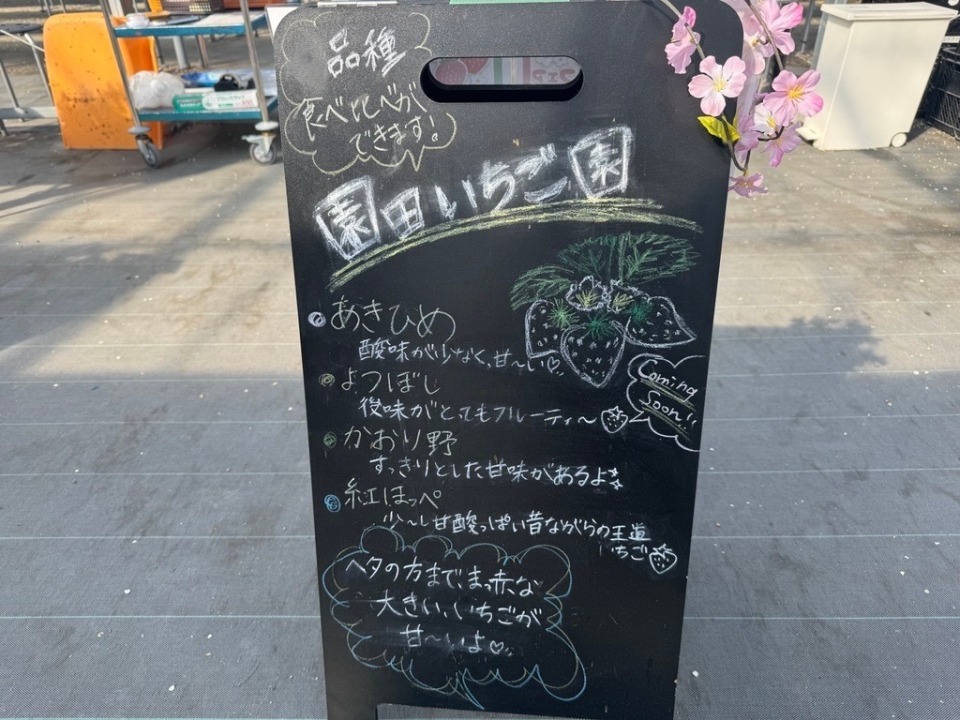 品種
食べ比べが
できます!
園田いちご園
あきひめ
酸味が少なく、甘〜い♡
Coming
Soon!!
よつぼし
後味がとてもフルーティ〜
かおり野
すっきりとした甘味があるよ
紅ほっぺ
少〜し甘酸っぱい昔ながらの王道
いちご
ヘタの方まで、まっ赤な
大きい、いちごが
甘〜いよ♡